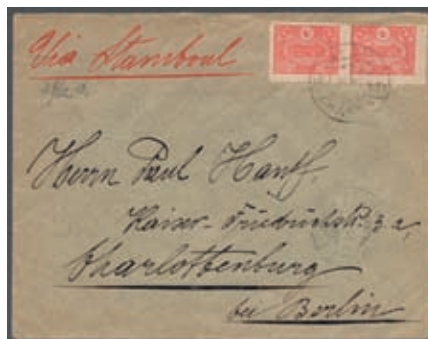 Via Stamboul
Herrn Paul Hanff
Kaiser-Friedrichstr. 3a,
Charlottenburg
bei Berlin